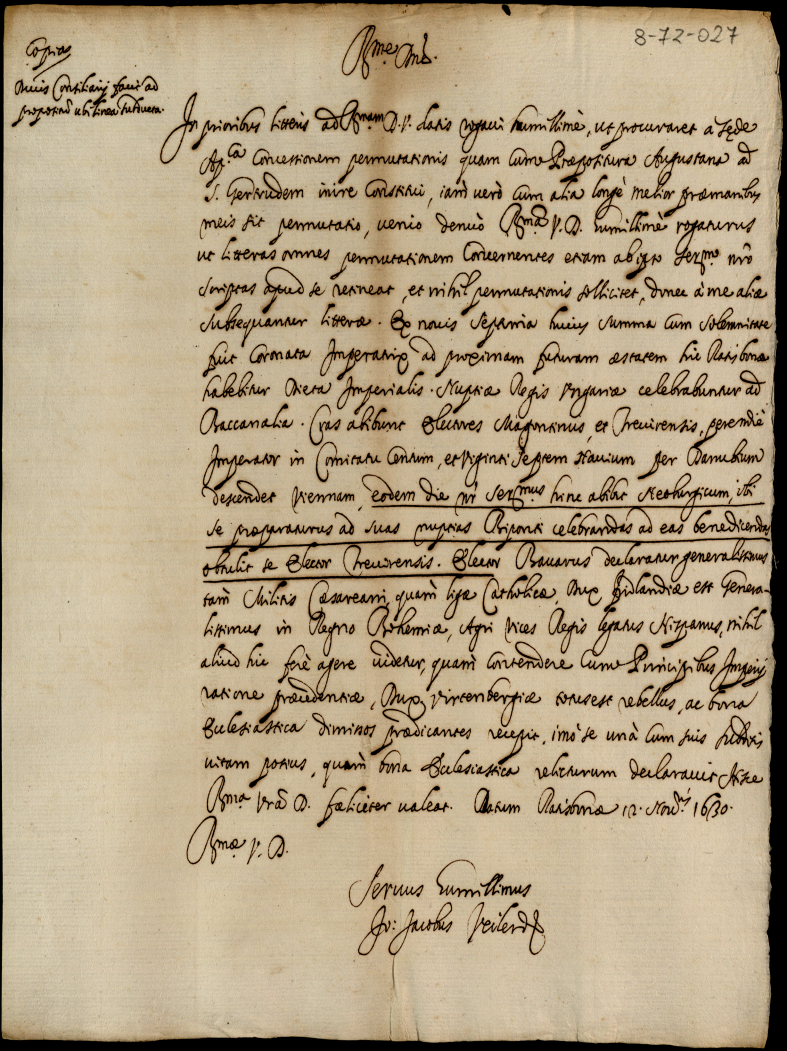 8-72-027
Copias
huius Consiliarij facit ad
propositum ubi linea subducta.
R.me D.ne
In prioribus litteris ad R.mam D.V. datis rogaui humillimè, ut procuraret à sede
Ap.ca Concessionem permutationis quam cum Præpositura Augustana ad
S. Gertrudem inire constitui, iam verò cum alia longè melior præ manibus
meis sit permutatio, uenio denuò R.mã V.D. humillimè rogaturus
ut litteras omnes permutationem concernentes etiam ab ipso Ser.mo nr̃o
scriptas apud se retineat, et nihil permutationis sollicitet, donec à me aliæ
subsequantur litteræ. Ex nouis Septima huius summa cum solemnitate
fuit Coronata Imperatrix, ad proximam futuram æstatem hic Ratisbonæ
habebitur Dieta Imperialis. Nuptiæ Regis Vngariæ celebrabuntur ad
Baccanalia. Cras abibunt Electores Magontinus, et Treuirensis, perendiè
Imperator in Comitatu Centum, et viginti septem Nauium per Danubium
descendet Viennam, eodem die nr̃ Ser.mus hinc abibit Neoburgicum, ibi
se præparaturus ad suas nuptias Biponti celebrandas ad eas benedicendas
obtulit se Elector Treuirensis. Elector Bauarus declaratur generalissimus
tam Militis Cæsareani, quam ligæ Catholicæ, Dux Fridlandiæ est Genera-
lissimus in Regno Bohemiæ, Agri Vices Regis legatus Hispanus, nihil
aliud hic ferè agere uidetur, quam contendere cum Principibus Imperij
ratione præcedentiæ, Dux Virtenbergiæ totus est rebellus, ac bona
Ecclesiastica dimissos prædicantes recepit, imò se unà cum suis subditis
uitam potius, quam bona Ecclesiastica relicturum declarauit. Hisce
R.ma Vr̃a D. fæliciter ualeat. Datum Ratisbonæ 12. Nou.ris 1630.
R.mæ V. D.
Seruus humillimus
Jo: Jacobus